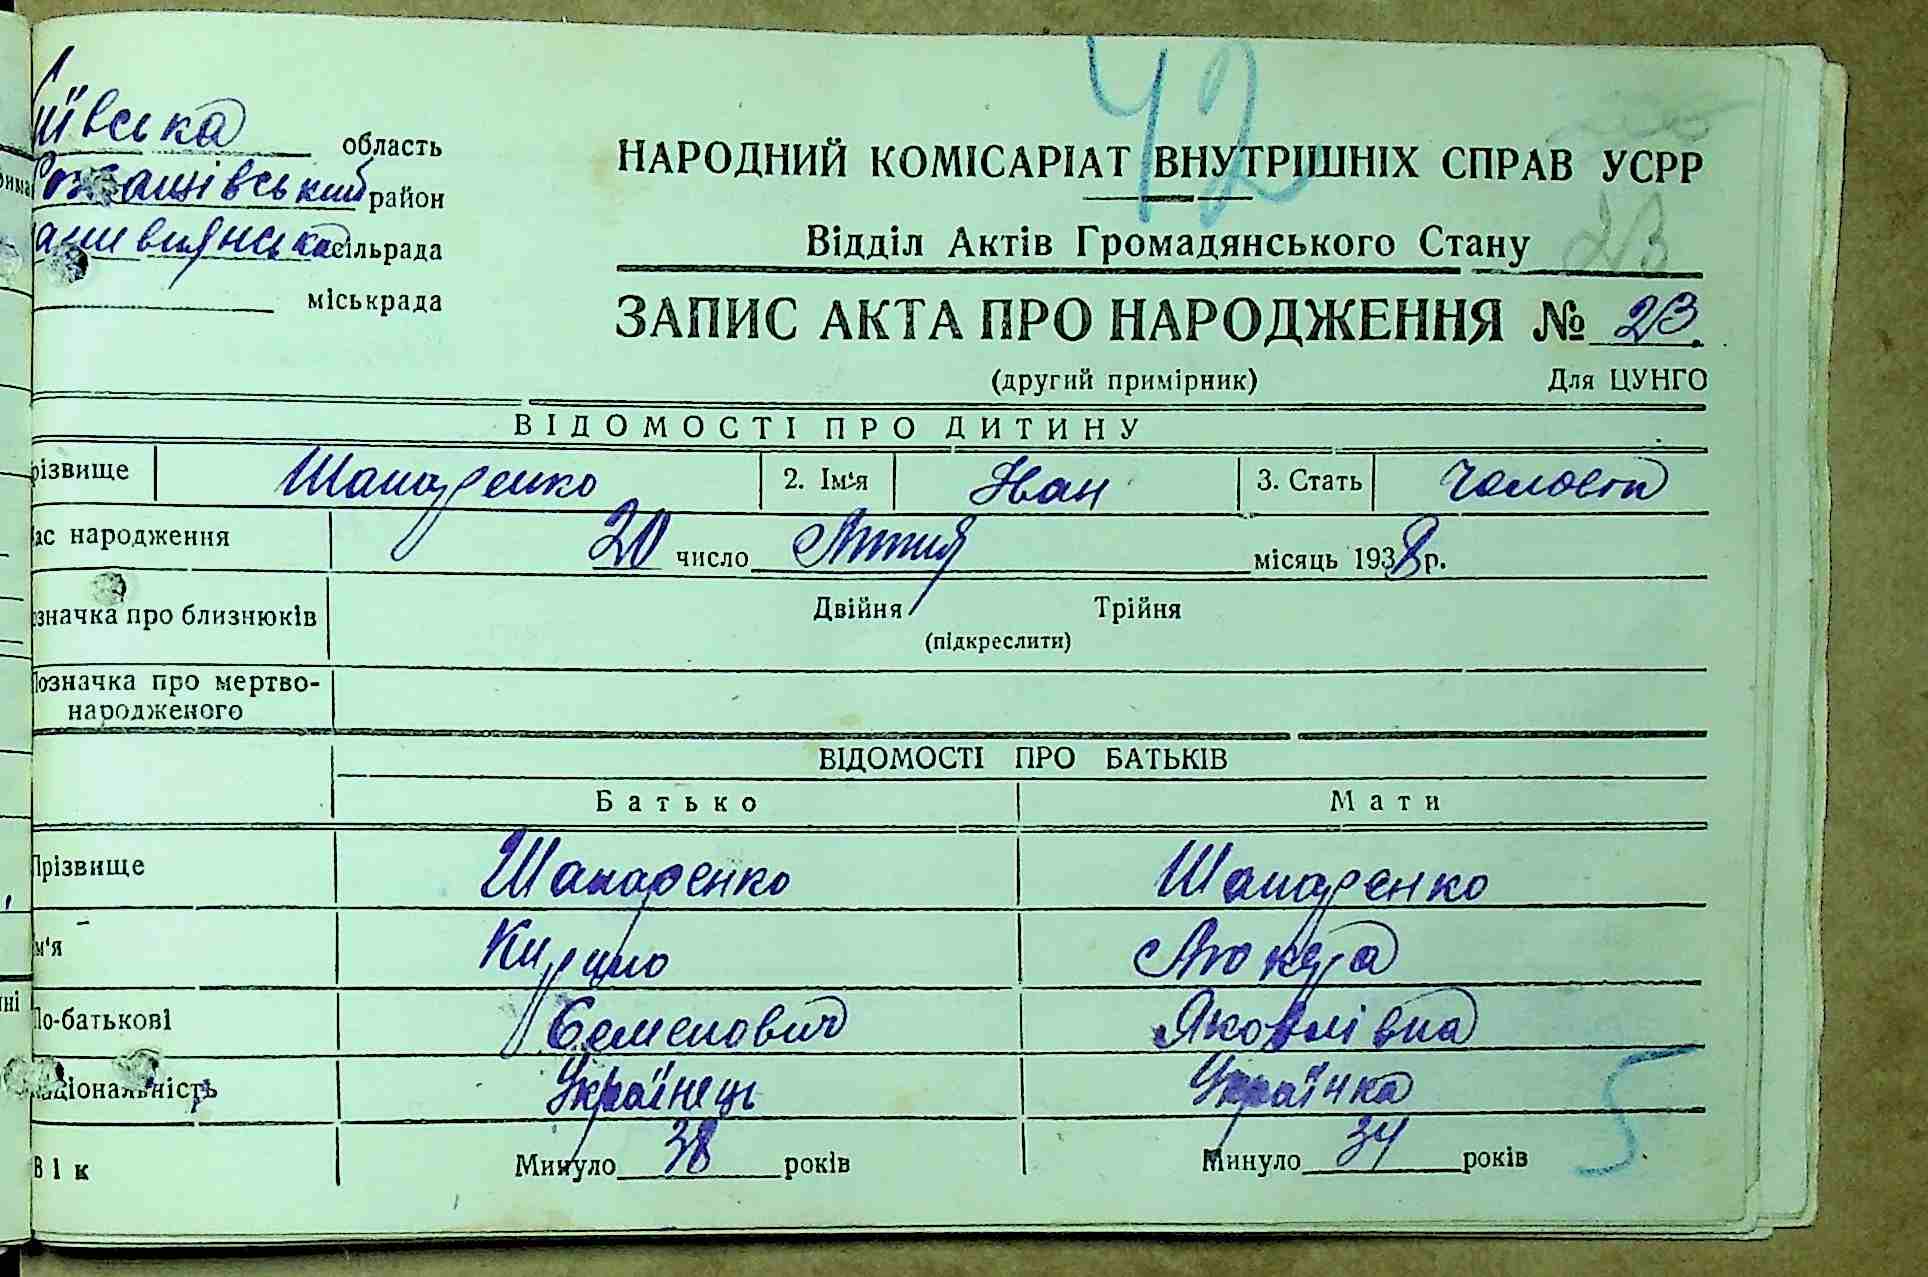 42
ївська область
район
сільрада
міськрада
НАРОДНИЙ КОМІСАРІАТ ВНУТРІШНІХ СПРАВ УСРР
Відділ Актів Громадянського Стану
23
ЗАПИС АКТА ПРО НАРОДЖЕННЯ № 23.
(другий примірник) Для ЦУНГО
ВІДОМОСТІ ПРО ДИТИНУ
різвище Шапаренко 2. Ім'я Іван 3. Стать
ас народження 20 число Лютия місяць 1938 р.
значка про близнюків Двійня Трійня
(підкреслити)
Позначка про мертво-
народженого
ВІДОМОСТІ ПРО БАТЬКІВ
Батько Мати
Прізвище Шапаренко Шапаренко
м'я Кирило
По-батькові Семенович Яковлівна
аціональність Українець Українка
Вік Минуло 38 років Минуло 34 років
5